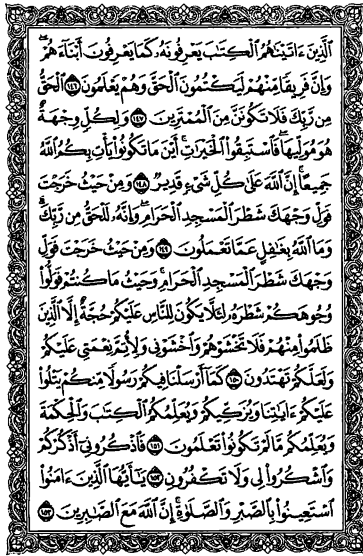 الَّذِينَ ءَاتَيْنَٰهُمُ الْكِتَٰبَ يَعْرِفُونَهُۥ كَمَا يَعْرِفُونَ أَبْنَآءَهُمْ ۖ
وَإِنَّ فَرِيقًا مِّنْهُمْ لَيَكْتُمُونَ الْحَقَّ وَهُمْ يَعْلَمُونَ ١٤٦ الْحَقُّ
مِن رَّبِّكَ فَلَا تَكُونَنَّ مِنَ الْمُمْتَرِينَ ١٤٧ وَلِكُلٍّ وِجْهَةٌ
هُوَ مُوَلِّيهَا ۖ فَاسْتَبِقُوا الْخَيْرَٰتِ ۚ أَيْنَ مَا تَكُونُوا يَأْتِ بِكُمُ اللَّهُ
جَمِيعًا ۚ إِنَّ اللَّهَ عَلَىٰ كُلِّ شَىْءٍ قَدِيرٌ ١٤٨ وَمِنْ حَيْثُ خَرَجْتَ
فَوَلِّ وَجْهَكَ شَطْرَ الْمَسْجِدِ الْحَرَامِ ۖ وَإِنَّهُۥ لَلْحَقُّ مِن رَّبِّكَ ۗ
وَمَا اللَّهُ بِغَٰفِلٍ عَمَّا تَعْمَلُونَ ١٤٩ وَمِنْ حَيْثُ خَرَجْتَ فَوَلِّ
وَجْهَكَ شَطْرَ الْمَسْجِدِ الْحَرَامِ ۚ وَحَيْثُ مَا كُنتُمْ فَوَلُّوا
وُجُوهَكُمْ شَطْرَهُۥ لِئَلَّا يَكُونَ لِلنَّاسِ عَلَيْكُمْ حُجَّةٌ إِلَّا الَّذِينَ
ظَلَمُوا مِنْهُمْ فَلَا تَخْشَوْهُمْ وَاخْشَوْنِى وَلِأُتِمَّ نِعْمَتِى عَلَيْكُمْ
وَلَعَلَّكُمْ تَهْتَدُونَ ١٥٠ كَمَآ أَرْسَلْنَا فِيكُمْ رَسُولًا مِّنكُمْ يَتْلُوا
عَلَيْكُمْ ءَايَٰتِنَا وَيُزَكِّيكُمْ وَيُعَلِّمُكُمُ الْكِتَٰبَ وَالْحِكْمَةَ
وَيُعَلِّمُكُم مَّا لَمْ تَكُونُوا تَعْلَمُونَ ١٥١ فَاذْكُرُونِىٓ أَذْكُرْكُمْ
وَاشْكُرُوا لِى وَلَا تَكْفُرُونِ ١٥٢ يَٰٓأَيُّهَا الَّذِينَ ءَامَنُوا
اسْتَعِينُوا بِالصَّبْرِ وَالصَّلَوٰةِ ۚ إِنَّ اللَّهَ مَعَ الصَّٰبِرِينَ ١٥٣